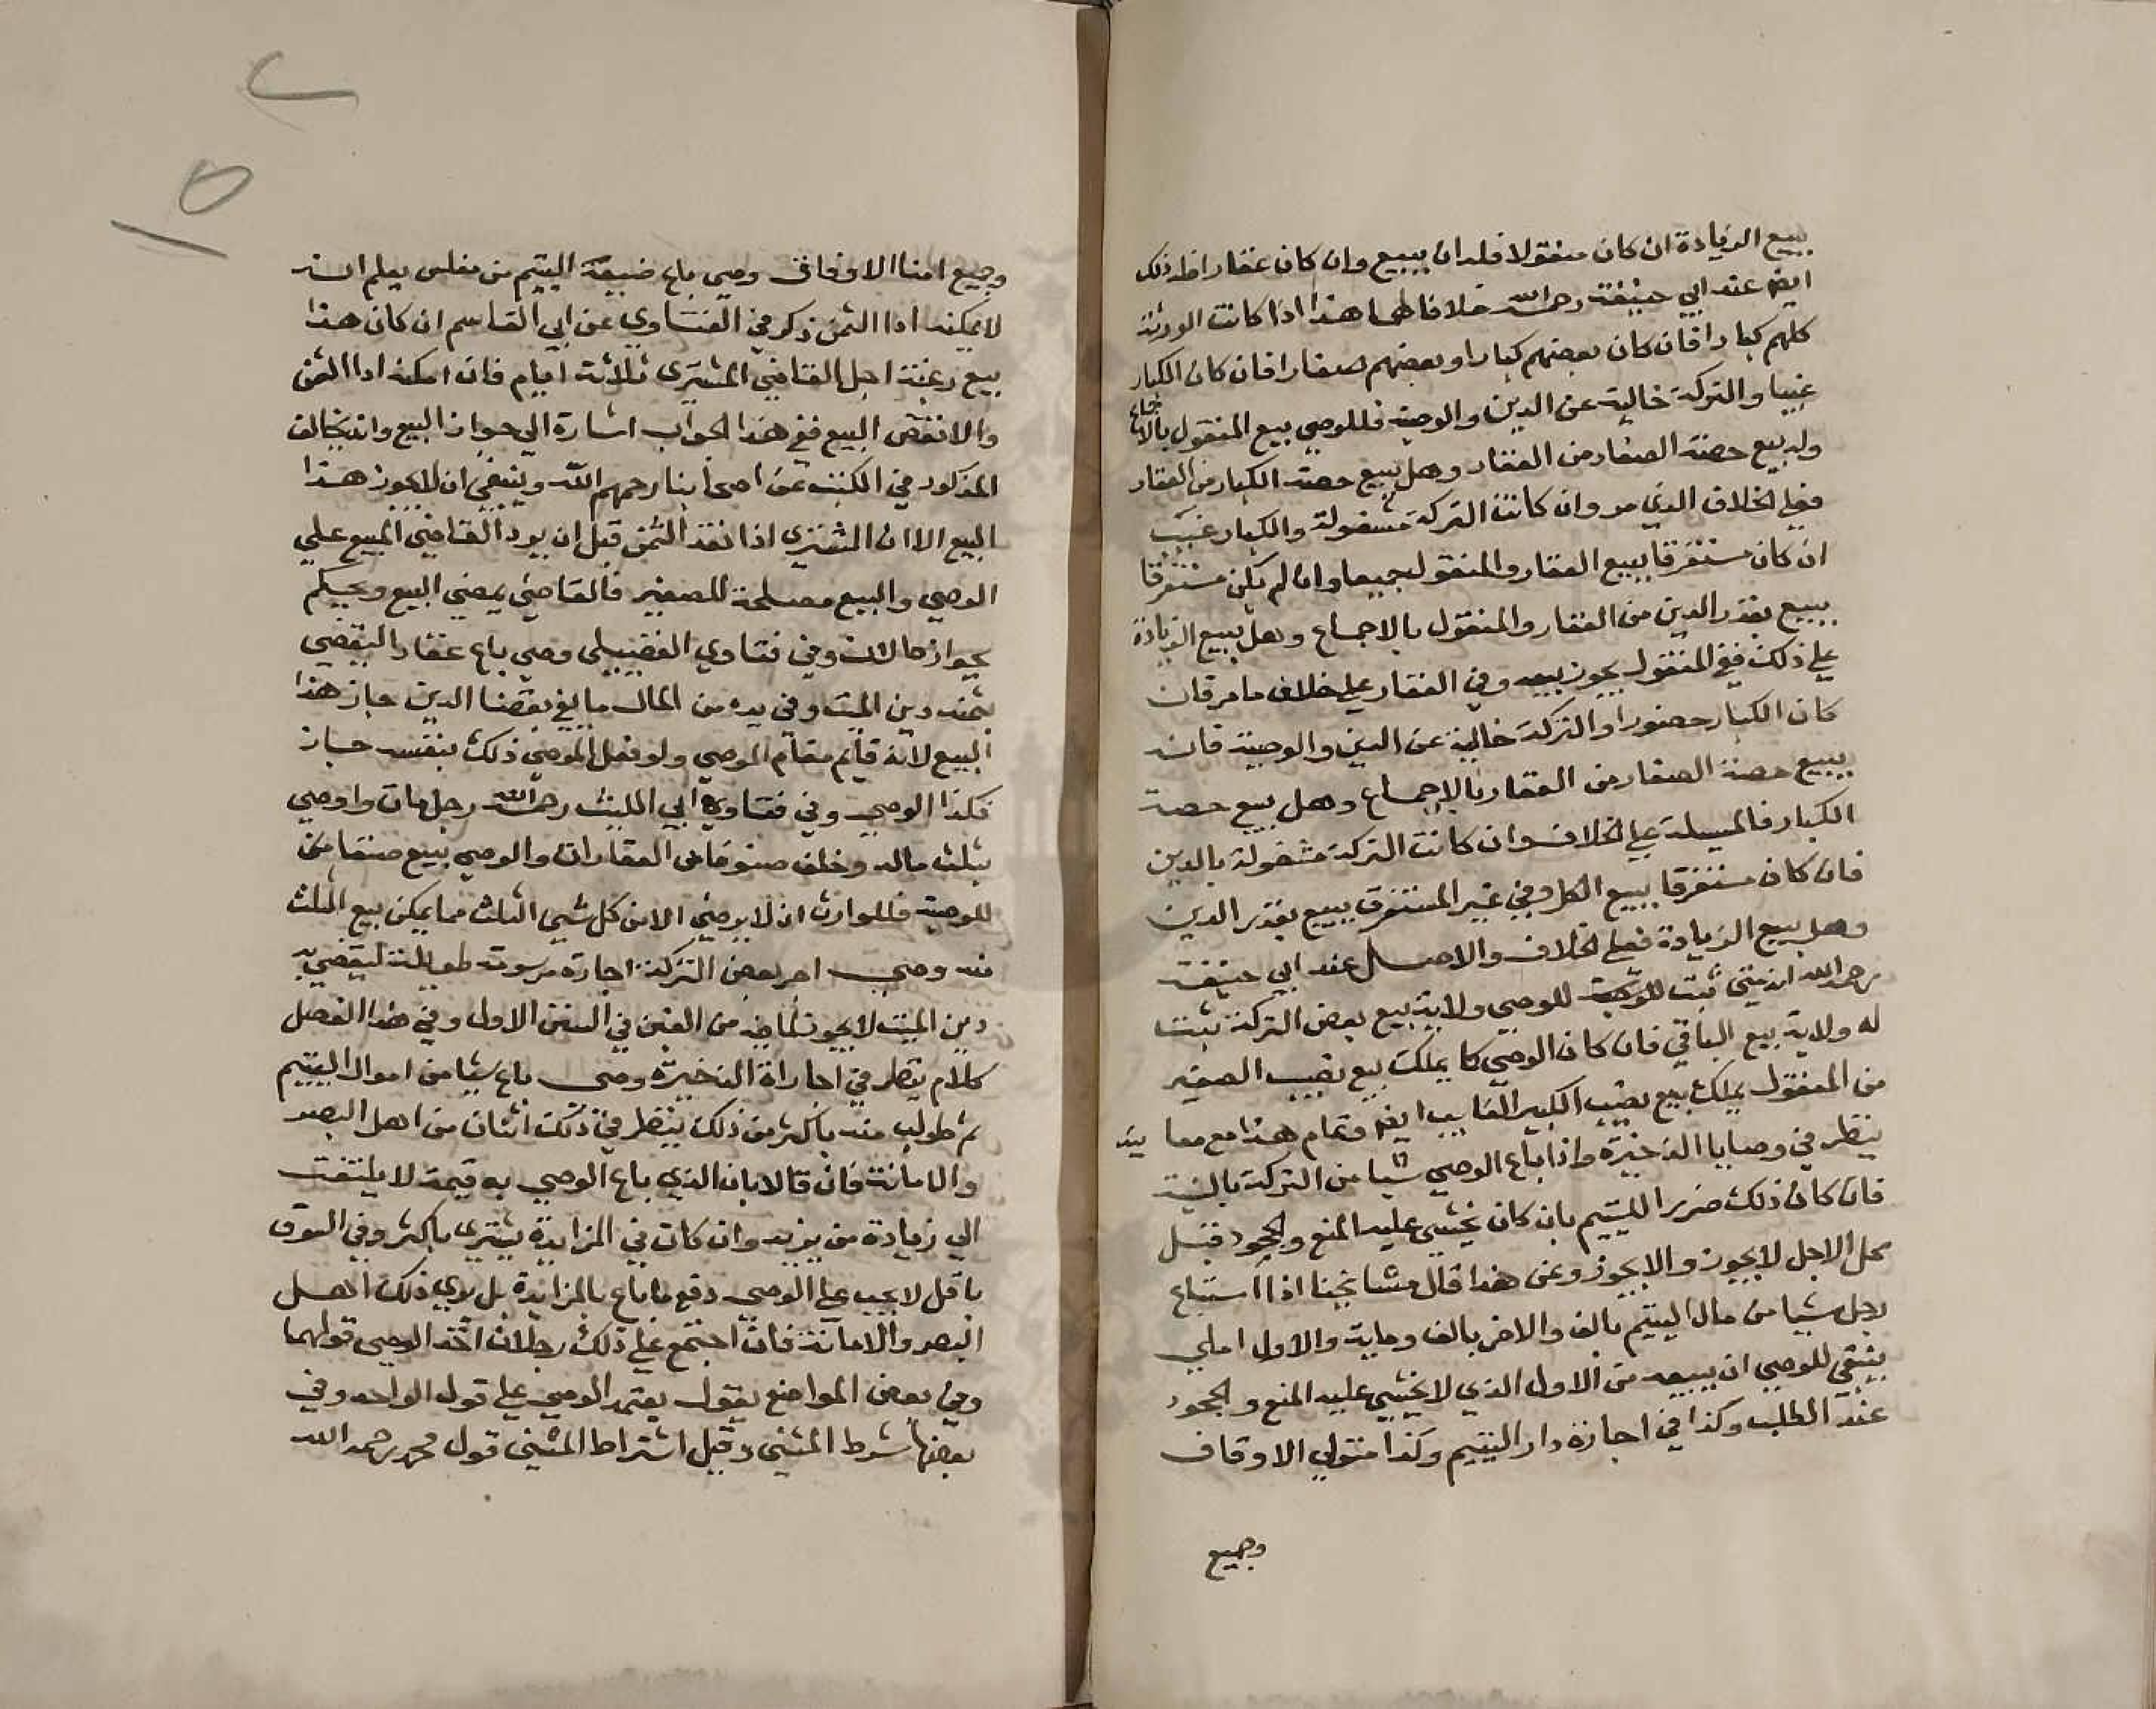 يبيع الزيادة ان كان منقولا فله ان يبيع وان كان عقارا فله ذلك
ايضا عند ابي حنيفة رحمه الله خلافا لهما هذا اذا كانت الورثة
كلهم كبارا فان كان بعضهم كبارا وبعضهم صغارا فان كان الكبار
غيبا والتركة خالية عن الدين والوصية فللوصي بيع المنقول بالاجماع
وله بيع حصة الصغار من العقار وهل يبيع حصة الكبار من العقار
فعلي الخلاف الذي مر وان كانت التركة مشغولة والكبار غيب
ان كان مستغرقا يبيع العقار والمنقول جميعا وان لم يكن مستغرقا
يبيع بقدر الدين من العقار والمنقول بالاجماع وهل يبيع الزيادة
علي ذلك ففي المنقول يجوز بيعه وفي العقار علي خلاف ما مر فان
كان الكبار حضورا والتركة خالية عن الدين والوصية فانه
يبيع حصة الصغار من العقار بالاجماع وهل يبيع حصة
الكبار فالمسيلة علي الخلاف وان كانت التركة مشغولة بالدين
فان كان مستغرقا يبيع الكل وفي غير المستغرق يبيع بقدر الدين
وهل يبيع الزيادة فعلي الخلاف والاصل عند ابي حنيفة
رحمه الله انه متي ثبت للوصي ولاية بيع بعض التركة ثبتت
له ولاية بيع الباقي فان كان الوصي كما يملك بيع نصيب الصغير
من المنقول يملك بيع نصيب الكبير الغايب ايضا وتمام هذا مع معا يند
ينظر في وصايا الذخيرة واذا باع الوصي شيا من التركة بالنسية
فان كان ذلك ضررا لليتيم بان كان يخشي عليه المنع والجحود قبل
محل الاجل لا يجوز والا يجوز وعن هذا قال مشايخنا اذا استباع
رجل شيا من مال اليتيم بالف والاخر بالف وماية والاول املي
ينبغي للوصي ان يبيعه من الاول الذي لا يخشي عليه المنع والجحود
عند الطلب وكذا في اجارة دار اليتيم وكذا متولي الاوقاف
وجميع
وجميع امنا الاوقاف وصي باع ضيعة اليتيم من مفلس يعلم انه
لا يمكنه ادا الثمن ذكر في الفتاوي عن ابي القاسم ان كان هذا
بيع رغبة اجل القاضي المشتري ثلاثة ايام فان امكنه ادا الثمن
والا نقض البيع ففي هذا الجواب اشارة الي جواز البيع وانه يخالف
المذكور في الكتب عن اصحابنا رحمهم الله وينبغي ان لا يجوز هذا
البيع الا ان المشتري اذا نقد الثمن قبل ان يرد القاضي المبيع علي
الوصي والبيع مصلحة للصغير فالقاضي يمضي البيع ويحكم
بجوازه وفي فتاوي الفضيلي وصي باع عقارا ليقضي
بثمنه دين الميت وفي يده من المال ما يفي بقضا الدين جاز هذا
البيع لانه قايم مقام الموصي ولو فعل الموصي ذلك بنفسه جاز
فكذا الوصي وفي فتاوي ابي الليث رحمه الله رجل مات واوصي
بثلث ماله وخلف صنوفا من العقارات والوصي يبيع صنفا من
للوصية فللوارث ان لا يرضي الا من كل شي الثلث مما يمكن بيع الثلث
منه وصي اجر بعض التركة اجارة مرسومة طويلة ليقضي به
دين الميت لا يجوز لما فيه من الغبن في السنين الاول وفي هذا الفصل
كلام ينظر في اجارات الذخيرة وصي باع شيا من اموال اليتيم
ثم طولب منه باكثر من ذلك ينظر في ذلك اثنان من اهل البصر
والامانة فان قالا بان الذي باع الوصي به قيمة لا يلتفت
الي زيادة من يزيد وان كان في المزايدة يشتري باكثر وفي السوق
باقل لا يجب علي الوصي دفع ما باع بالمزايدة بل يري ذلك اهل
البصر والامانة فان اجتمع علي ذلك رجلان اخذ الوصي قولهما
وفي بعض المواضع يقول يعتمد الوصي علي قول الواحد وفي
بعضها شرط المثني وقيل اشتراط المثني قول محمد رحمه الله